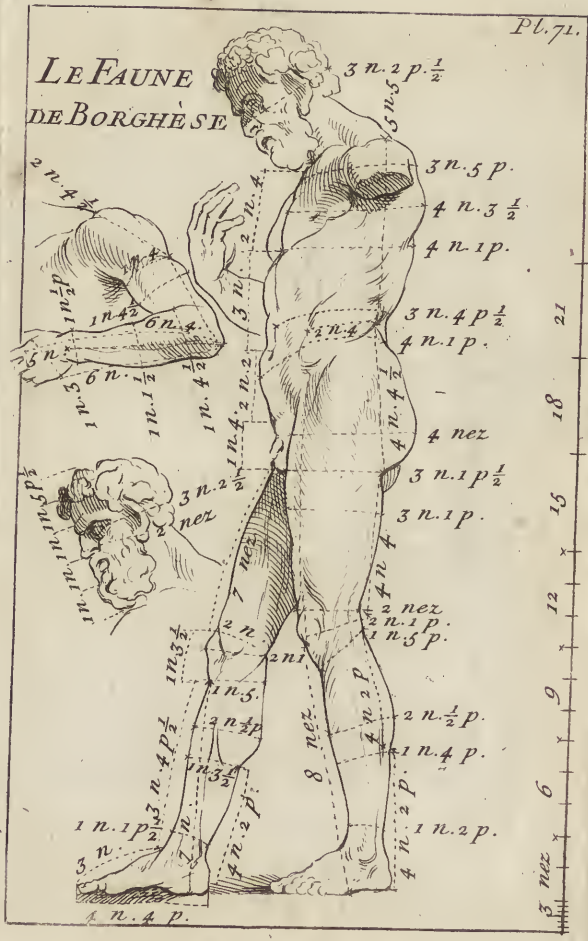 Pl. 71.
LE FAUNE
DE BORGHÈSE
3 n. 2 p. 1/2
5 n. 5
3 n. 5 p.
4 n. 3 1/2
4 n. 1 p.
3 n. 4 p 1/2
4 n. 1 p.
4 n. 4 1/2
4 nez
3 n. 1 p 1/2
3 n. 1 p.
4 n 4
2 nez
2 n. 1 p.
1 n. 5 p.
2 n. 1/2 p.
4 n 2 p
1 n. 4 p.
1 n. 2 p.
4 n 2 p.
2 n. 4 1/2
1 n. 4
1 n 1/2 p
1 n 4 1/2
6 n. 4
5 n
6 n.
1 n. 3
1 n. 1 1/2
1 n. 4 1/2
2 n. 4
3 n
2 n. 4
2 n. 2
1 n. 4.
3 n. 2 1/2
2 nez
1 n. 1 n. 1 n. 1 n. 5 p 1/2
7 nez
2 n
1 n 3 1/2
2 n 1
1 n. 5
2 n 1/2 p
8 nez
1 n 3 1/2
3 n. 4 p 1/2
7 n.
4 n 2 p.
1 n. 1 p 1/2
3 n.
4 n. 4 p.
21
18
15
12
9
6
3 nez